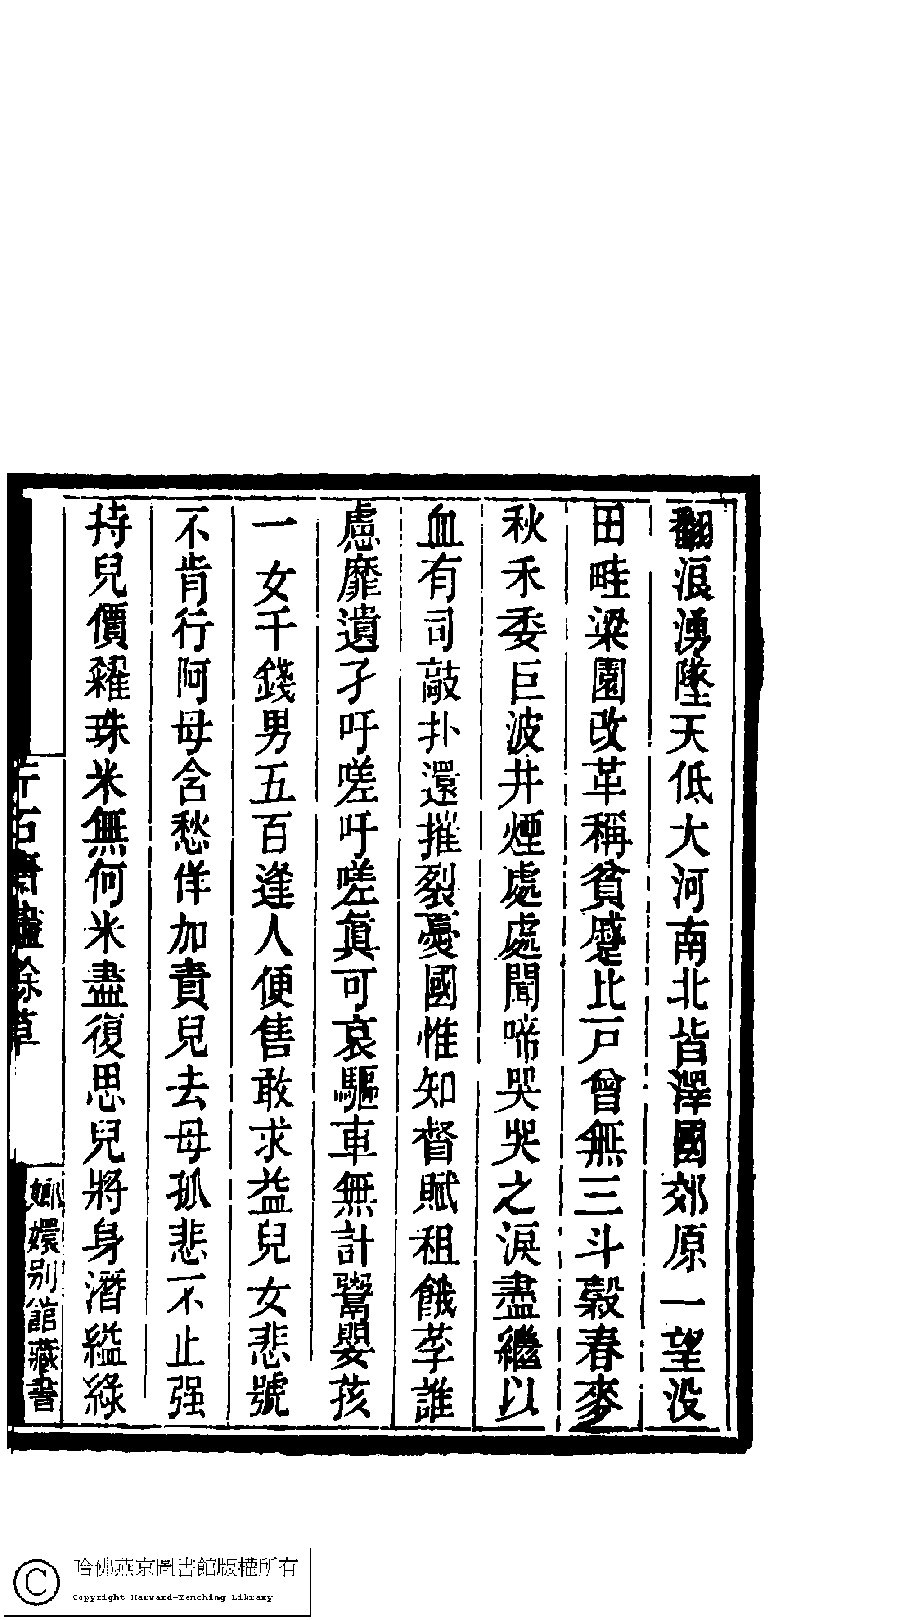 翻浪湧墜天低大河南北皆澤國郊原一望没
田畦梁園改革稱貧蹙比戸曾無三斗穀春麥
秋禾委巨波井煙處處聞啼哭哭之淚盡繼以
血有司敲扑還摧裂憂國惟知督賦租餓莩誰
慮靡遺孑吁嗟吁嗟真可哀驅車無計鬻嬰孩
一女千錢男五百逢人便售敢求益兒女悲號
不肯行阿母含愁佯加責兒去母孤悲不止强
持兒價糴珠米無何米盡復思兒將身潛縊綠
片石齋燼餘草
嫏嬛别館藏書
哈佛燕京圖書館版權所有
Copyright Harvard-Yenching Library